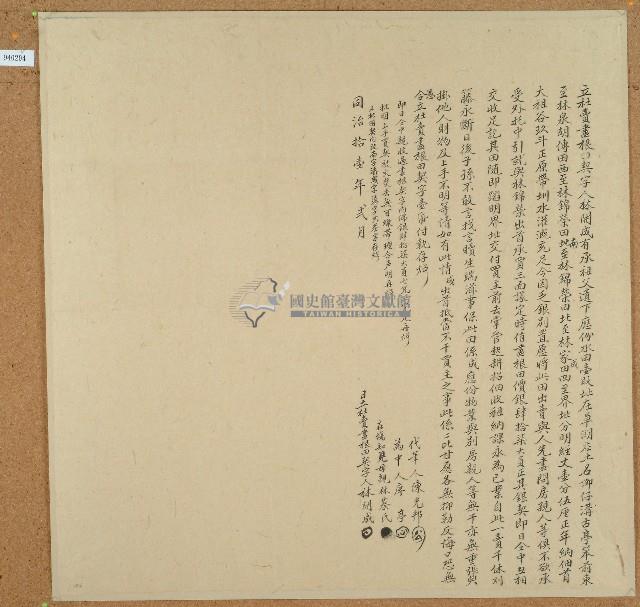 立杜賣盡根田契字人林開成有承祖父遺下應份水田壹段址在草湖庄土名
至林泉胡傳田西至林錦榮田南至林錦榮田北至林家田四至界址分明經丈壹分伍厘正年納佃首
大租谷玖斗正原帶圳水灌溉充足今因乏銀別置愿將此田出賣與人先盡問房親人等俱不欲承
受外托中引就與林錦榮出首承買三面議定時值盡根田價銀肆拾柒大員正其銀契即日仝中兩相
交收足訖其田隨即踏明界址交付買主前去掌管起耕招佃收租納課永為己業自此一賣千休割
籐永斷日後子孫不敢言找言贖生端滋事保此田係成應份物業與別房親人等無干亦無重張典
掛他人財物及上手不明等情如有此情成出首抵當不干買主之事此係二比甘愿各無抑勒反悔口恐無
憑合立杜賣盡根田契字壹帋付執存炤
即日仝中親收過盡根契字內佛銀肆拾柒大員
同治拾壹年弍月
代筆人陳光邦
為中人房亭
在場知見母親林蔡氏
日立杜賣盡根田契字人林開成
國史館臺灣文獻館
TAIWAN HISTORICA
940204